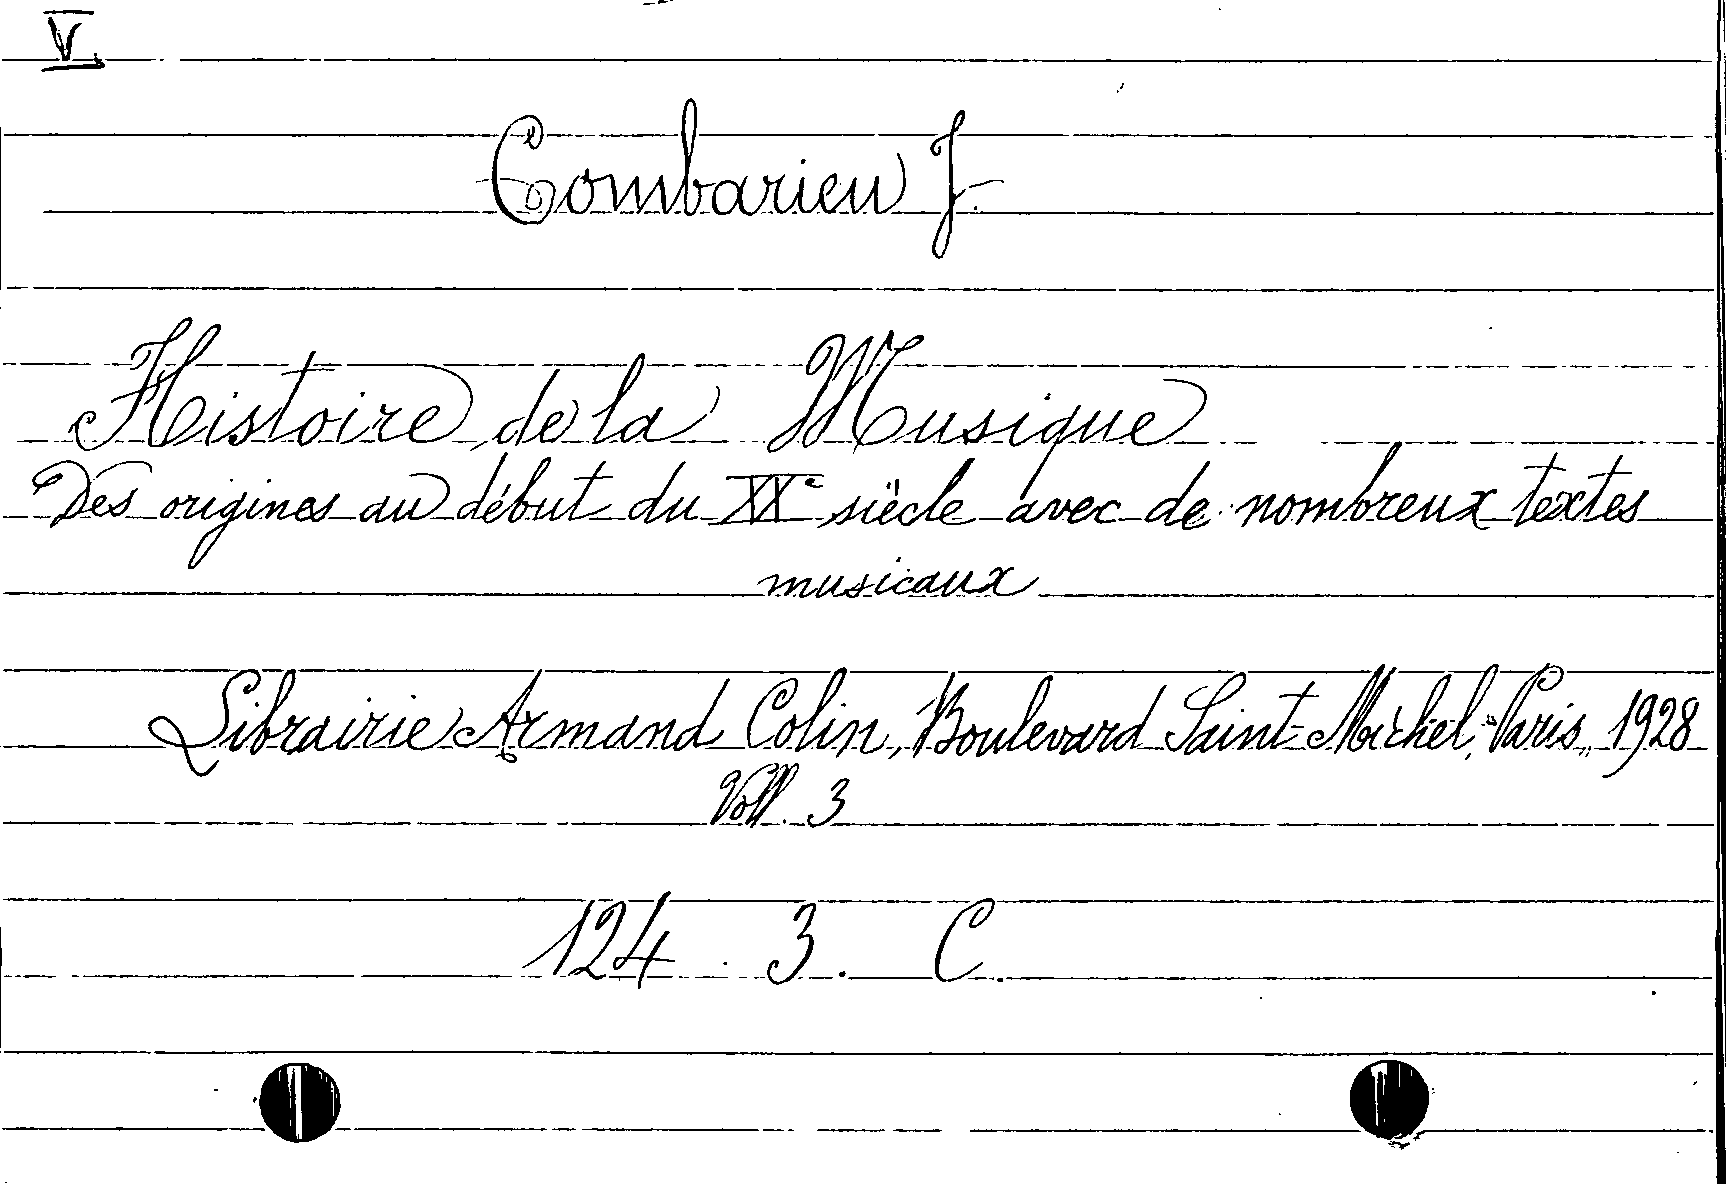 V.
Combarieu J.
Histoire de la Musique
Des origines au début du XXe siècle avec de nombreux textes
musicaux
Librairie Armand Colin, Boulevard Saint-Michel, Paris, 1928
Voll. 3
124. 3. C.